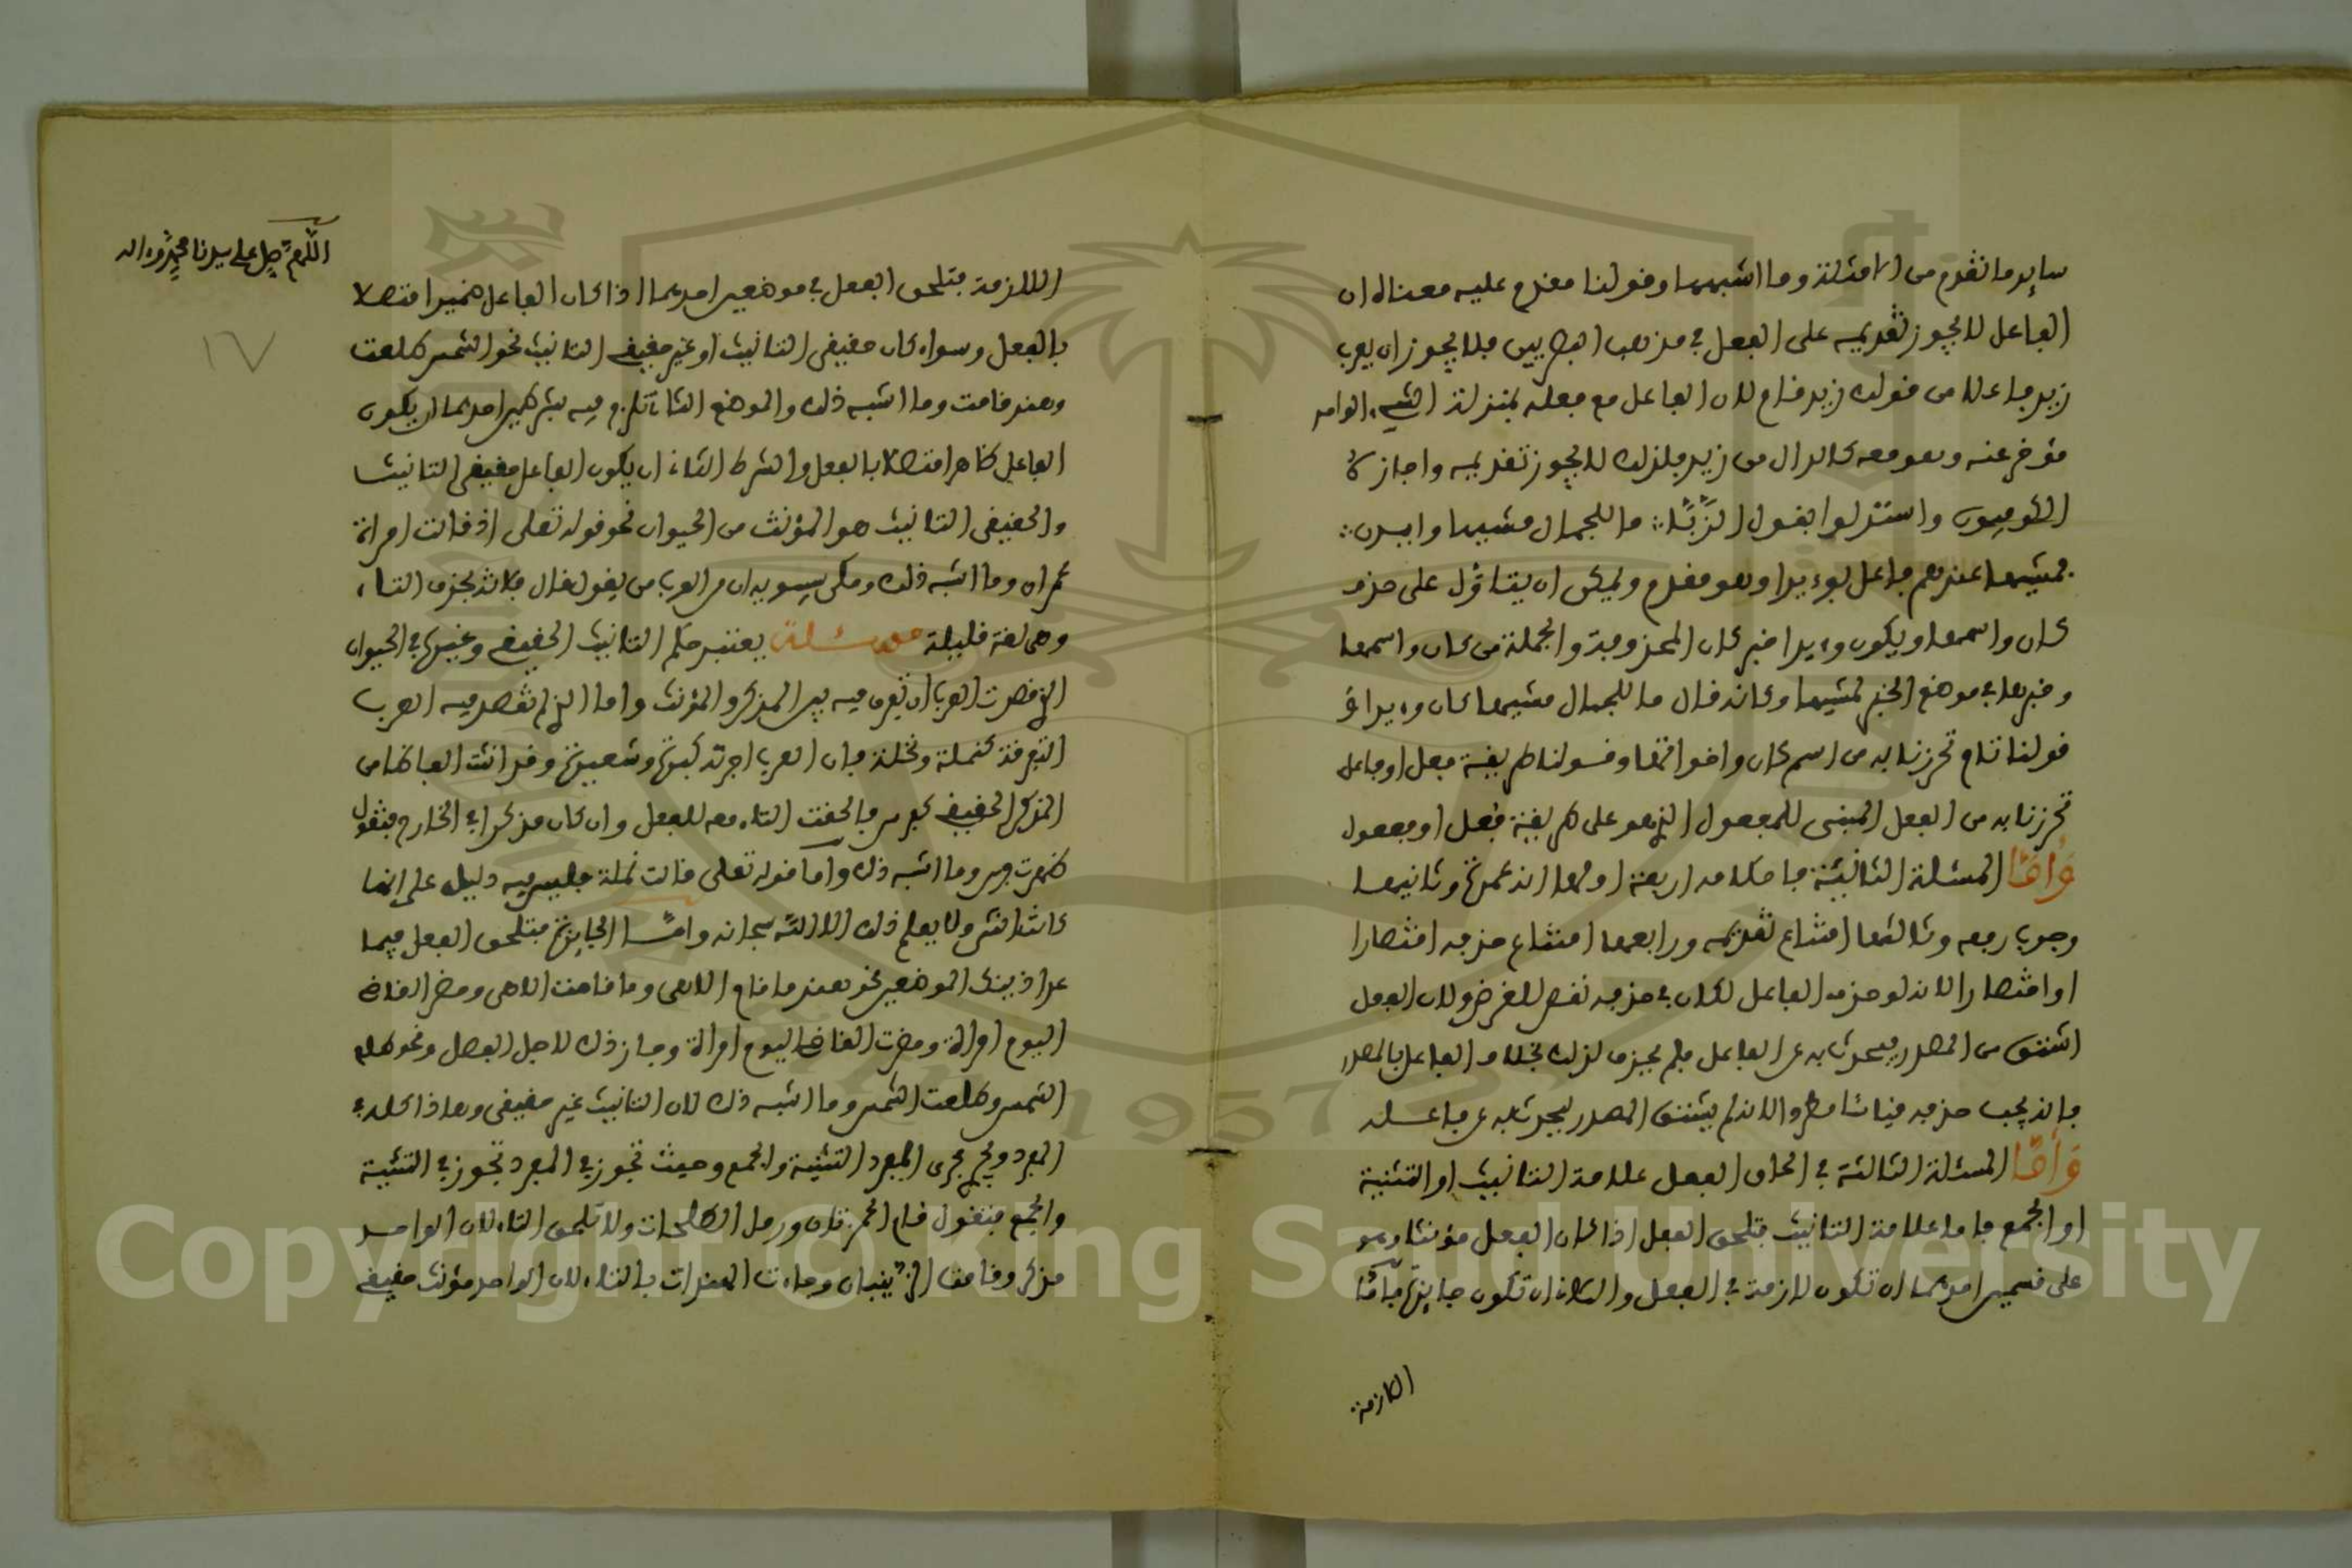 ساير ما تقدم من الامثلة وما اشبهها وقولنا مقدم عليه معناه ان
الفاعل لا يجوز تقديمه على الفعل في مذهب البصريين فلا يجوز ان يعرب
زيد فاعلا من قولك زيد قام لان الفاعل مع فعله بمنزلة الشيء الواحد
مؤخر عنه وهو معه كالدال من زيد فلذلك لا يجوز تقديمه واجازه
الكوفيون واستدلوا بقول الزبا ما للجمال مشيها وايدن
فمشيها عندهم فاعل بوءيدا وهو مقدم ويمكن ان يتاول على حذف
كان واسمها ويكون وءيدا خبر كان المحذوفة والجملة من كان واسمها
وخبرها في موضع الخبر لمشيها وكانه قال ما للجمال مشيها كان وءيدا و
قولنا تام تحرزنا به من اسم كان واخواتها وقولنا طريقة فعل او فاعل
تحرزنا به من الفعل المبني للمفعول الذي هو على طريقة فعل او مفعول
وأما المسئلة الثانية فاحكامه اربعة اولها انه عمدة وثانيها
وجوب رفعه وثالثها امتناع تقديمه ورابعها امتناع حذفه اقتصارا
او اختصارا لانه لو حذف الفاعل لكان في حذفه نقص للغرض ولان الفعل
اشتق من المصدر ليحدث به عن الفاعل فلم يحذف لذلك بخلاف الفاعل بالمصدر
فانه يجب حذفه قياسا مطردا لانه لم يشتق المصدر ليحدث به عن فاعله
وأما المسئلة الثالثة في الحاق الفعل علامة التانيث او التثنية
او الجمع فاما علامة التانيث فتلحق الفعل اذا كان الفعل مؤنثا وهو
على قسمين احدهما ان تكون لازمة في الفعل والثاني ان تكون جايزة فاما
اللازمة
اللهم صل على سيدنا محمد وءاله
١٧
اللازمة فتلحق الفعل في موضعين احدهما اذا كان الفاعل ضميرا متصلا
بالفعل وسواء كان حقيقي التانيث او غير حقيقي التانيث نحو الشمس طلعت
وهند قامت وما اشبه ذلك والموضع الثاني تلزم فيه بشرطين احدهما ان يكون
الفاعل ظاهرا متصلا بالفعل والشرط الثاني ان يكون الفاعل حقيقي التانيث
والحقيقي التانيث هو المؤنث من الحيوان نحو قوله تعلى اذ قالت امراة
عمران وما اشبه ذلك وحكى سيبويه ان من العرب من يقول قال فلانة بحذف التاء
وهي لغة قليلة مسئلة يعتبر حكم التانيث الحقيقي وغيره في الحيوان
الذي قصدت العرب ان تفرق فيه بين المذكر والمؤنث واما الذي لم تقصد فيه العرب
التفرقة كنملة ونخلة فان العرب اجرته كبرة وشعيرة وقد انثت الفاظا من
المذكر الحقيقي كفرس فالحقت التاء معه للفعل وان كان مذكرا في الخارج فتقول
ضمرت فرس وما اشبه ذلك واما قوله تعلى قالت نملة فليس فيه دليل على انها
كانت انثى ولا يعلم ذلك الا الله سبحانه واما الجايزة فتلحق الفعل فيما
عدا ذينك الموضعين نحو هند ما قام الا هي وما قامت الا هي وحضر القاضي
اليوم امراة وحضرت القاضي اليوم امراة وجاز ذلك لاجل الفصل ونحو طلع
الشمس وطلعت الشمس وما اشبه ذلك لان التانيث غير حقيقي وهذا كله في
المفرد ويجري مجرى المفرد التثنية والجمع وحيث تجوز في المفرد تجوز في التثنية
والجمع فتقول قام الحمزتان ورحل الطلحات ولا تلحق التاء لان الواحد
مذكر وقامت الزينبان وجاءت الهندات بالتاء لان الواحد مؤنث حقيقي
Copyright © King Saud University
1957